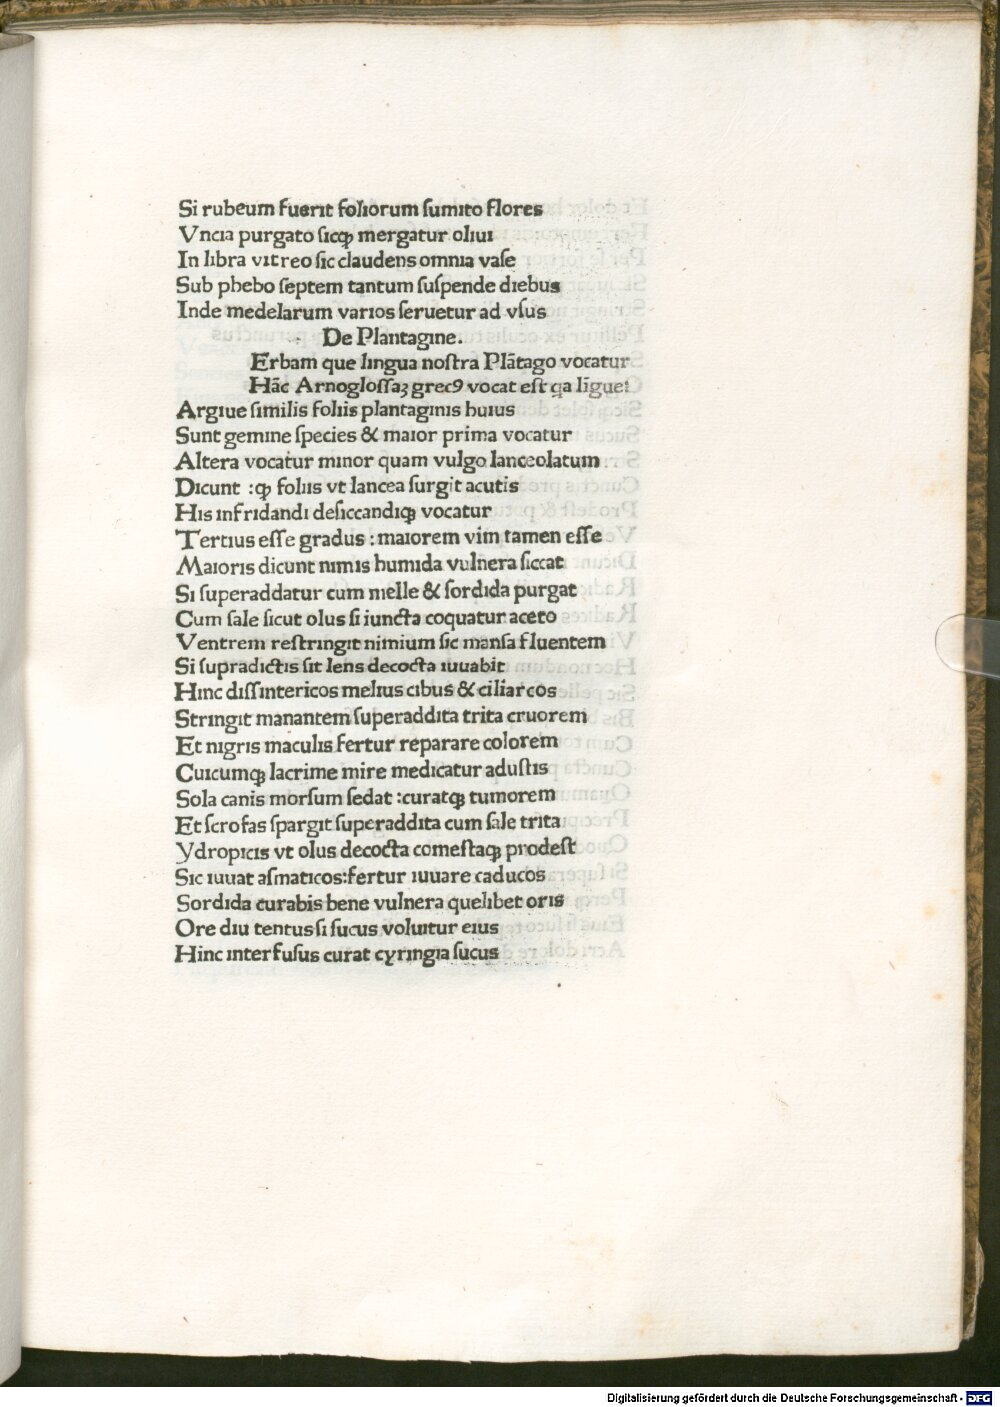 Si rubeum fuerit foliorum sumito flores
Vncia purgato sicqꝫ mergatur oliui
In libra vitreo sic claudens omnia vase
Sub phebo septem tantum suspende diebus
Inde medelarum varios seruetur ad vsus
De Plantagine.
Erbam que lingua nostra Plãtago vocatur
Hãc Arnoglossaꝫ grecꝰ vocat est qa lĩguei
Argiue similis foliis plantaginis huius
Sunt gemine species & maior prima vocatur
Altera vocatur minor quam vulgo lanceolatum
Dicunt :qꝫ foliis vt lancea surgit acutis
His infridandi desiccandiqꝫ vocatur
Tertius esse gradus : maiorem vim tamen esse
Maioris dicunt nimis humida vulnera siccat
Si superaddatur cum melle & sordida purgat
Cum sale sicut olus si iuncta coquatur aceto
Ventrem restringit nimium sic mansa fluentem
Si supradictis sit lens decocta iuuabit
Hinc dissintericos melius cibus & ciliarcos
Stringit manantem superaddita trita cruorem
Et nigris maculis fertur reparare colorem
Cuicumqꝫ lacrime mire medicatur adustis
Sola canis morsum sedat :curatqꝫ tumorem
Et scrofas spargit superaddita cum sale trita
Ydropicis vt olus decocta comestaqꝫ prodest
Sic iuuat asmaticos:fertur iuuare caducos
Sordida curabis bene vulnera quelibet oris
Ore diu tentus si sucus voluitur eius
Hinc interfusus curat cyringia sucus
Digitalisierung gefördert durch die Deutsche Forschungsgemeinschaft - DFG